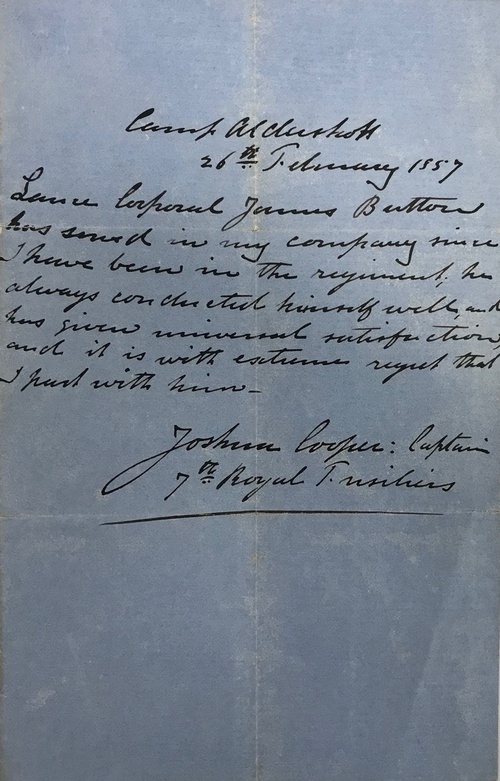 Camp Aldershott
26th February 1857
Lance Corporal James Button
has served in my company since
I have been in the regiment, he
always conducted himself well, and
has given universal satisfaction,
and it is with extreme regret that
I part with him_
Joshua Cooper: Captain
7th Royal Fusiliers